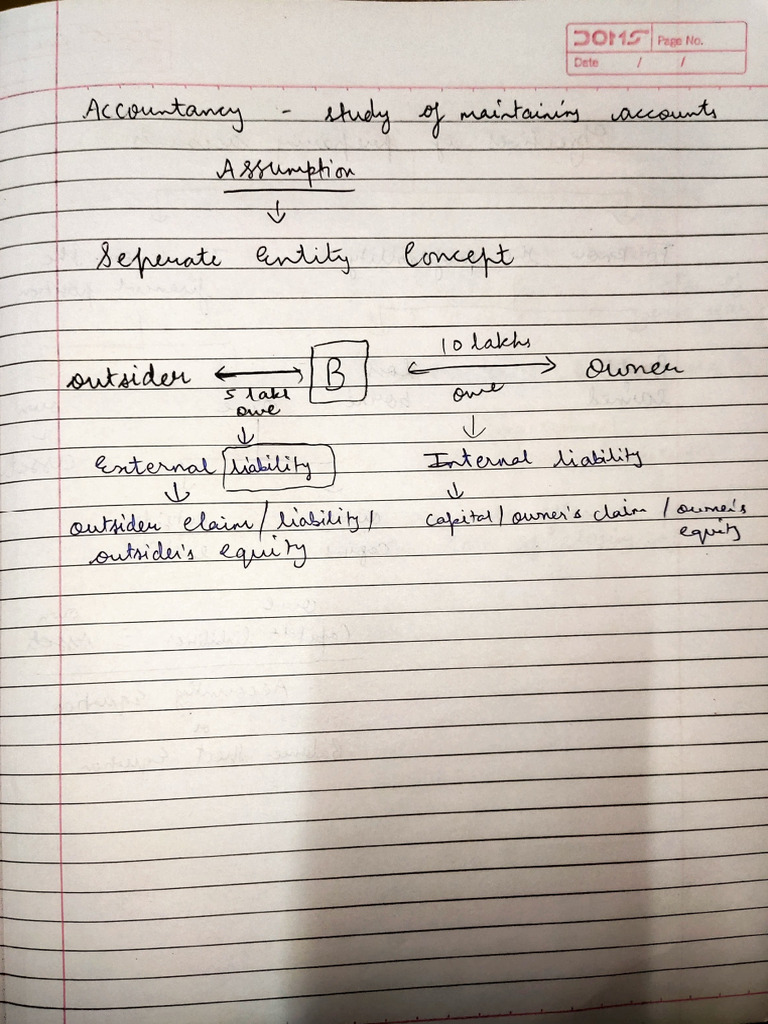 DOMS Page No.
Date / /
Accountancy - study of maintaining accounts
Assumption
↓
Seperate Entity Concept
10 lakhs
outsider ⟷ B ⟷ owner
5 lakh owe
owe
↓ ↓
External liability Internal liability
↓ ↓
outsider claim / liability / capital / owner's claim / owner's
outsider's equity equity